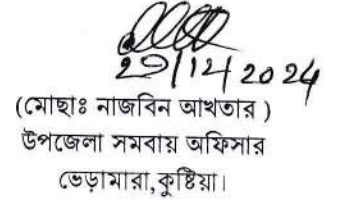 29/12/2024
(মোছাঃ নাজবিন আখতার )
উপজেলা সমবায় অফিসার
ভেড়ামারা,কুষ্টিয়া।